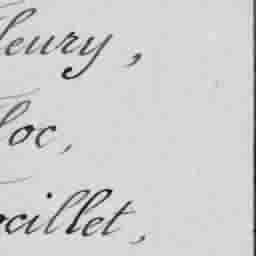 leury,
loc,
ocillet,